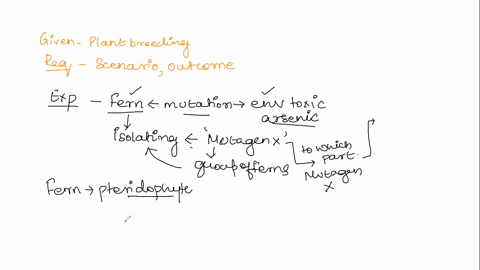 Given - Plant breeding
Req - Scenario, outcome
Exp - fern ← mutation → env toxic
arsenic
Isolating ← 'Mutagen x' to which part.
group of ferns Mutagen x
Fern → pteridophyte